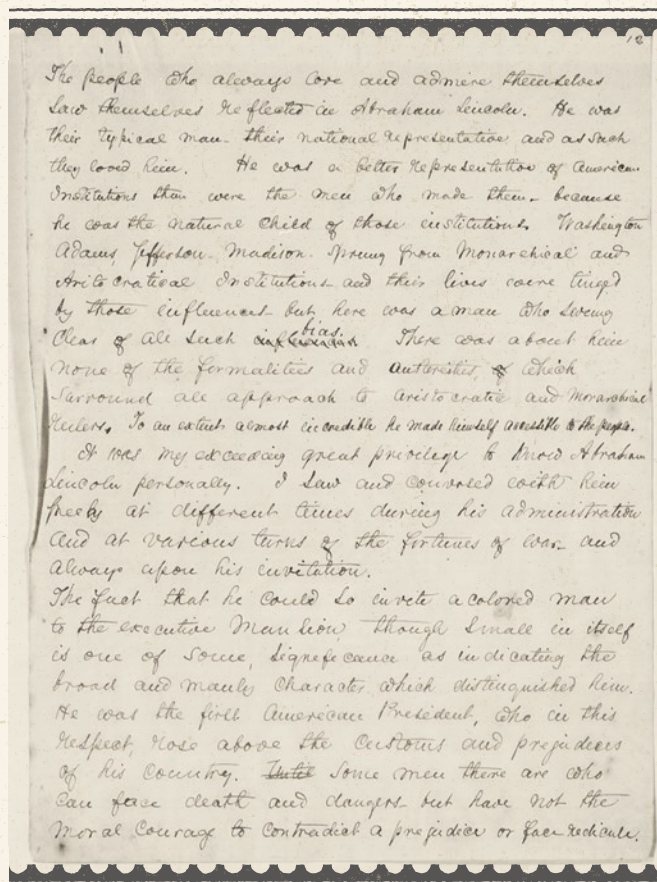 18
The people who always love and admire themselves
saw themselves reflected in Abraham Lincoln. He was
their typical man. their national representative and as such
they loved him. He was a better representative of American
Institutions than were the men who made them. because
he was the natural child of those institutions. Washington
Adams, Jefferson. Madison. sprung from Monarchical and
Aristocratical Institutions and their lives were tinged
by those influences but here was a man who swung
clear of all such influences bias. There was about him
none of the formalities and austerities of which
surround all approach to aristocratic and monarchical
rulers. To an extent almost incredible he made himself accessible to the people.
It was my exceeding great privilege to know Abraham
Lincoln personally. I saw and conversed with him
freely at different times during his administration
and at various turns of the fortunes of war. and
always upon his invitation.
The fact that he could so invite a colored man
to the executive Mansion, though small in itself
is one of some, significance as indicating the
broad and manly character, which distinguished him.
He was the first American President, who in this
respect, rose above the customs and prejudices
of his country. Some men there are who
can face death and dangers but have not the
moral courage to contradict a prejudice or face redicule.